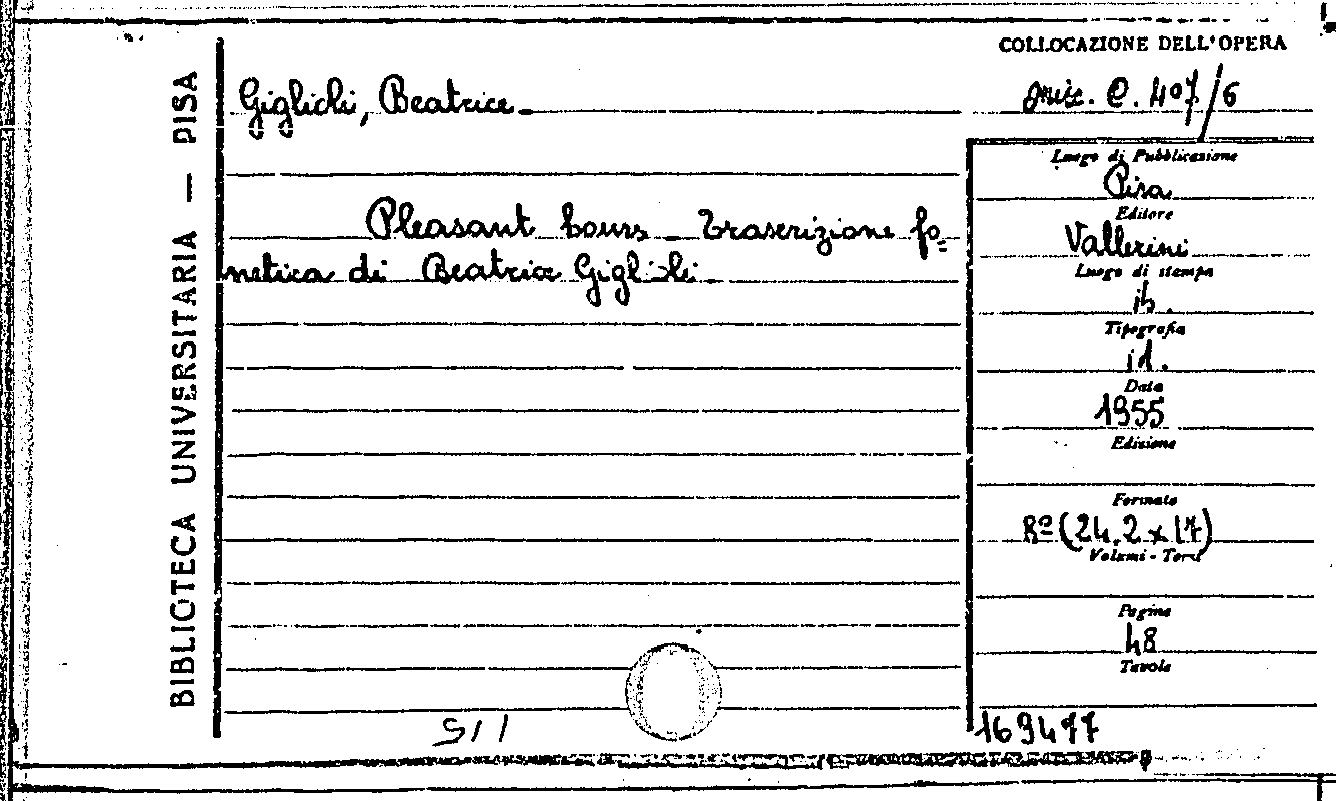 COLLOCAZIONE DELL'OPERA
Misc. C. 407/6
BIBLIOTECA UNIVERSITARIA — PISA
Giglioli, Beatrice.
Pleasant hours - Trascrizione fo=
netica di Beatrice Giglioli.
Luogo di Pubblicazione
Pisa
Editore
Vallerini
Luogo di stampa
ib.
Tipografia
id.
Data
1955
Edizione
Formato
8º (24,2 x 17)
Volumi - Tomi
Pagine
48
Tavole
169477